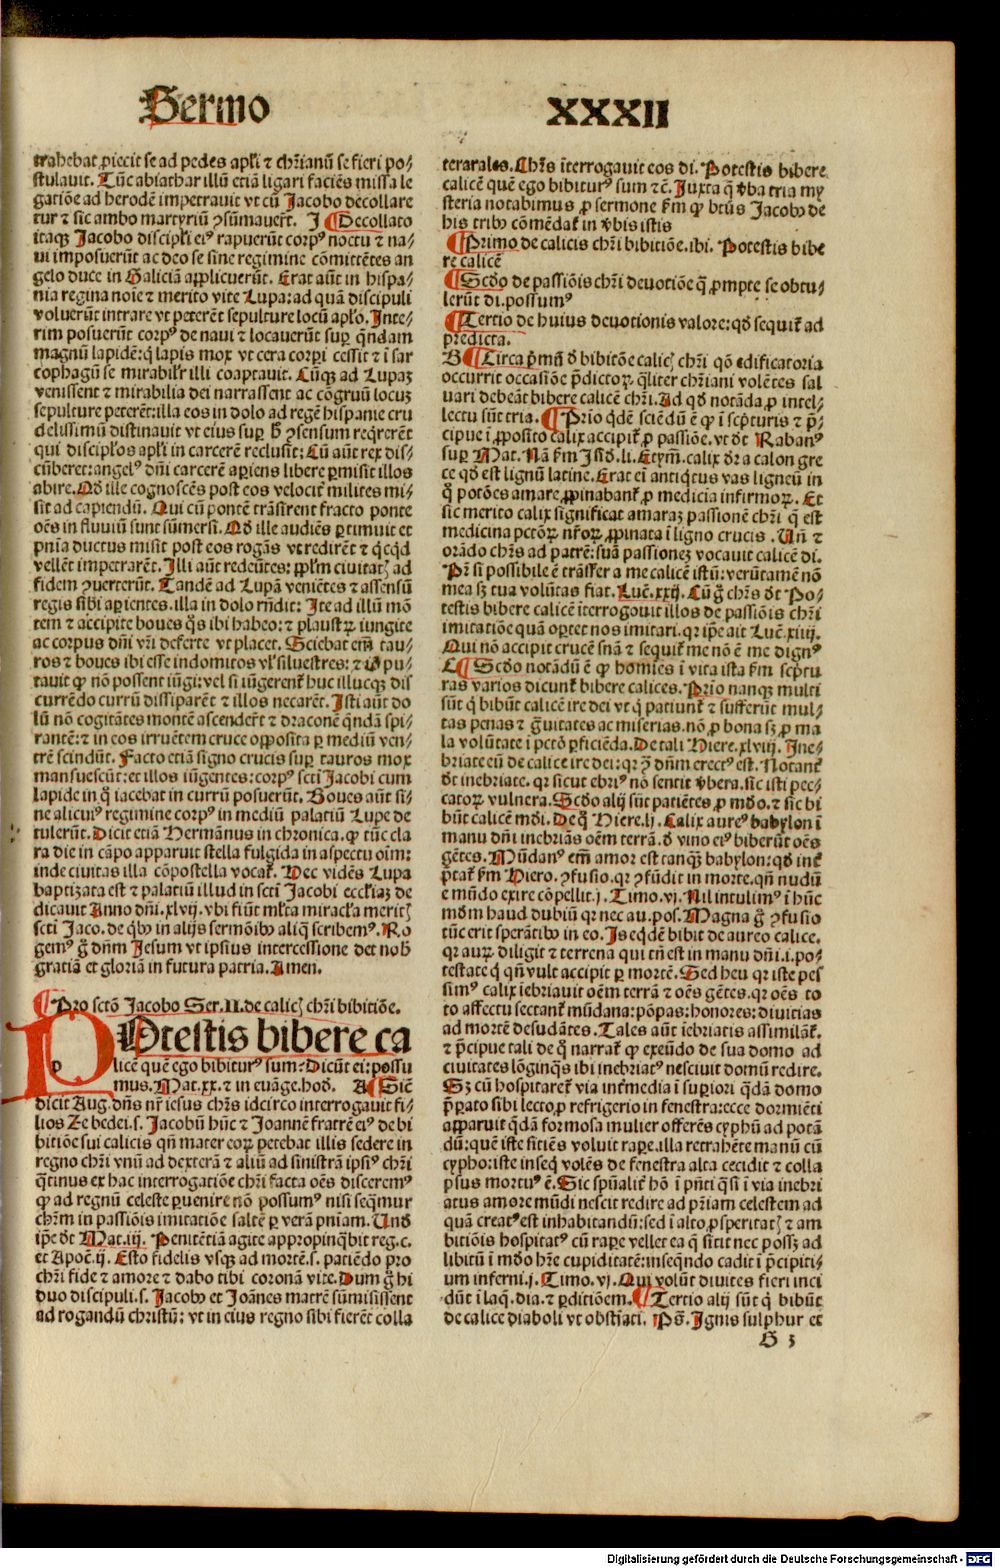 Sermo XXXII
trahebat ꝓiecit se ad pedes apl̃i ⁊ chr̃ianũ se fieri po⸗
stulauit. Tũc abiathar illũ etiã ligari faciẽs missa le
gatiõe ad herodẽ impetrauit vt cũ Jacobo decollare
tur ⁊ sic ambo martyriũ ꝯsũmauer̃t. J ¶ Decollato
itaqꝫ Jacobo discipl̃i eiꝰ rapuerũt corpꝰ noctu ⁊ na⸗
ui imposuerũt ac deo se sine regimine cõmittẽtes an
gelo duce in Galiciã applicuerũt. Erat aũt in hispa⸗
nia regina noĩe ⁊ merito vite Lupa: ad quã discipuli
voluerũt intrare vt peterẽt sepulture locũ apl̃o. Inte⸗
rim posuerũt corpꝰ de naui ⁊ locauerũt suꝑ qñdam
magnũ lapidẽ: q̃ lapis mox vt cera corꝑi cessit ⁊ ĩ sar
cophagũ se mirabilr̃ illi coaptauit. Cũqꝫ ad Lupaꝫ
venissent ⁊ mirabilia dei narrassent ac cõgruũ locuꝫ
sepulture peterẽt: illa eos in dolo ad regẽ hispanie cru
delissimũ distinauit vt eius suꝑ h̃ ꝯsensum req̃rerẽt
qui discipl̃os apl̃i in carcerẽ reclusit: Cũ aũt rex dis⸗
cũberet: angelꝰ dñi carcerẽ aꝑiens libere ꝑmisit illos
abire. Qd̃ ille cognoscẽs post eos velocit̃ milites mi⸗
sit ad capiendũ. Qui cũ pontẽ trãsirent fracto ponte
oẽs in fluuiũ sunt sũmersi. Qd̃ ille audiẽs ꝑtimuit et
pñia ductus misit post eos rogãs vt redirẽt ⁊ q̃cq̃d
vellẽt impetrarẽt. Illi aũt redeũtes: ppl̃m ciuitatꝭ ad
fidem ꝯuerterũt. Tandẽ ad Lupã veniẽtes ⁊ assensũ
regis sibi aꝑientes. illa in dolo rñdit: Ite ad illũ mõ
tem ⁊ accipite boues q̃s ibi habeo: ⁊ plaustꝝ iungite
ac corpus dñi vr̃i deferte vt placet. Sciebat em̃ tau⸗
ros ⁊ boues ibi esse indomitos vl̃ siluestres: ⁊ iõ pu⸗
tauit ꝙ nõ possent iũgi: vel si iũgerent᷑ huc illucqꝫ dis
currẽdo currũ dissiparẽt ⁊ illos necarẽt. Isti aũt do
lũ nõ cogitãtes montẽ ascenderẽt ⁊ draconẽ q̃ndã spi⸗
rantẽ: ⁊ in eos irruẽtem cruce opposita ꝑ mediũ ven⸗
trẽ scindũt. Facto etiã signo crucis suꝑ tauros mox
mansuescũt: et illos iũgentes: corpꝰ scti Jacobi cum
lapide in q̃ iacebat in currũ posuerũt. Boues aũt si⸗
ne alicuiꝰ regimine corpꝰ in mediũ palatiũ Lupe de
tulerũt. Dicit etiã Hermãnus in chronica. ꝙ tũc cla
ra die in cãpo apparuit stella fulgida in aspectu oĩm:
inde ciuitas illa cõpostella vocat᷑. Hec vidẽs Lupa
baptizata est ⁊ palatiũ illud in scti Jacobi eccl̃iaꝫ de
dicauit Anno dñi. xlvij. vbi fiũt ml̃ta miracl̃a meritꝭ
scti Jaco. de q̃bꝰ in alijs sermõibꝰ aliq̃ scribemꝰ. Ro
gemꝰ g̃ dñm Jesum vt ipsius intercessione det nob̃
gratiã et gloriã in futura patria. Amen.
¶ Pro sctõ Jacobo Ser. II. de calicꝭ chr̃i bibitiõe.
POtestis bibere ca
licẽ quẽ ego bibiturꝰ sum? Dicũt ei: possu
mus. Mat. xx. ⁊ in euãge. hod. A ¶ Sicẽ
dicit Aug. dñs nr̃ iesus chr̃s idcirco interrogauit fi⸗
lios Zebedei. s. Jacobũ hũc ⁊ Joannẽ fratrẽ eiꝰ de bi
bitiõe sui calicis qñ mater eoꝝ petebat illis sedere in
regno chr̃i vnũ ad dexterã ⁊ aliũ ad sinistrã ipsiꝰ chr̃i
q̃tinus ex hac interrogatiõe chr̃i facta oẽs disceremꝰ
ꝙ ad regnũ celeste ꝑuenire nõ possumꝰ nisi seq̃mur
chr̃m in passiõis imitatiõe saltẽ ꝑ verã pñiam. Und̃
ip̃e dt̃ Mat. iij. Penitẽtiã agite appropinq̃bit reg. c.
et Apoc̃. ij. Esto fidelis vsqꝫ ad mortẽ. s. patiẽdo pro
chr̃i fide ⁊ amore ⁊ dabo tibi coronã vite. Dum g̃ hi
duo discipuli. s. Jacobꝰ et Joãnes matrẽ sũmisissent
ad rogandũ christũ: vt in eius regno sibi fierẽt colla
terarales. Chr̃s ĩterrogauit eos di. Potestis bibere
calicẽ quẽ ego bibiturꝰ sum ⁊c̃. Juxta q̃ v̓ba tria my
steria notabimus ꝓ sermone fm̃ ꝙ btũs Jacobꝰ de
his tribꝰ cõmẽdat᷑ in v̓bis istis
¶ Primo de calicis chr̃i bibitiõe. ibi. Potestis bibe
re calicẽ
¶ Scd̃o de passiõis chr̃i deuotiõe q̃ ꝓmpte se obtu⸗
lerũt di. possumꝰ
¶ Tertio de huius deuotionis valore: qd̃ sequit᷑ ad
predicta.
B ¶ Circa p̃mã d̃ bibitõe calicꝭ chr̃i qõ edificatoria
occurrit occasiõe p̃dictoꝝ. q̃liter chr̃iani volẽtes sal
uari debeãt bibere calicẽ chr̃i. Ad qd̃ notãda ꝓ intel⸗
lectu sũt tria. ¶ Prĩo q̃dẽ sciẽdũ ẽ ꝙ ĩ sc̃pturis ⁊ p̃⸗
cipue ĩ ꝓposito calix accipit᷑ ꝓ passiõe. vt dt̃ Rabanꝰ
suꝑ Mat. Nã fm̃ Jsid̃. li. Etym̃. calix dr̃ a calon gre
ce qd̃ est lignũ latine. Erat ei antiq̃tus vas ligneũ in
q̃ potões amare ꝓpinabant᷑ ꝓ medicia infirmoꝝ. Et
sic merito calix significat amaraꝫ passionẽ chr̃i q̃ est
medicina pctõꝝ nr̃oꝝ ꝓpinata ĩ ligno crucis. Uñ ⁊
orãdo chr̃s ad patrẽ: suã passioneꝫ vocauit calicẽ di.
Pr̃ si possibile ẽ trãsfer a me calicẽ istũ: verũtamẽ nõ
mea sꝫ tua volũtas fiat. Luc̃. xxij. Cũ g̃ chr̃s dt̃ Po⸗
testis bibere calicẽ ĩterogouit illos de passiõis chr̃i
imitatiõe quã oꝑtet nos imitari. qr ip̃e ait Luc̃. xiiij.
Qui nõ accipit crucẽ suã ⁊ sequit᷑ me nõ ẽ me dignꝰ
C ¶ Scd̃o notãdũ ẽ ꝙ homĩes ĩ vita ista fm̃ sc̃ptu
ras varios dicunt᷑ bibere calices. Prĩo nanqꝫ multi
sũt q̃ bibũt calicẽ ire dei vt q̃ patiunt᷑ ⁊ sufferũt mul⸗
tas penas ⁊ g̃uitates ac miserias. nõ ꝓ bona sꝫ ꝓ ma
la volũtate ĩ pctõ ꝑficiẽda. De tali Hiere. xlviij. Ine⸗
briate eũ de calice ire dei: qr ꝯ dñm erectꝰ est. Notant᷑
dt̃ inebriate. qr sicut ebriꝰ nõ sentit v̓bera. sic isti pec⸗
catoꝝ vulnera. Scd̃o alij sũt patiẽtes ꝓ mũdo. ⁊ sic bi
bũt calicẽ mũdi. De q̃ Hiere. lj. Calix aureꝰ babylon ĩ
manu dñi inebriãs oẽm terrã. d̃ vino eiꝰ biberũt oẽs
gẽtes. Mũdanꝰ em̃ amor est tanqꝫ babylon: qd̃ int᷑
p̃tat᷑ fm̃ Hiero. ꝯfusio. qr ꝯfũdit in morte. qñ nudũ
e mũdo exire cõpellit. j. Timo. vj. Nil intulimꝰ ĩ hũc
mũdm haud dubiũ qr nec au. pos. Magna g̃ ꝯfusio
tũc erit sperãtibꝰ in eo. Is eq̃dẽ bibit de aureo calice.
qr auꝝ diligit ⁊ terrena qui tñ est in manu dñi. i. po⸗
testate q̃ qñ vult accipit ꝑ mortẽ. Sed heu qr iste pes
simꝰ calix ĩebriauit oẽm terrã ⁊ oẽs gẽtes. qr oẽs to
to affectu sectant᷑ mũdana: põpas: honores: diuitias
ad mortẽ desudãtes. Tales aũt ĩebriatis assimilãt᷑.
⁊ p̃cipue tali de q̃ narrat᷑ ꝙ exeũdo de sua domo ad
ciuitates lõginq̃s ibi inebriatꝰ nesciuit domũ redire.
Sꝫ cũ hospitaret᷑ via int᷑media ĩ suꝑiori q̃dã domo
p̃parato sibi lecto, ꝓ refrigerio in fenestra: ecce dormiẽti
apparuit q̃dã formosa mulier offerẽs cyphũ ad potã
dũ: quẽ iste sitiẽs voluit raꝑe. illa retrahẽte manũ cũ
cypho: iste inseq̃ volẽs de fenestra alta cecidit ⁊ colla
psus mortuꝰ ẽ. Sic spũalit᷑ hõ ĩ pñti q̃si ĩ via inebri
atus amore mũdi nescit redire ad pr̃iam celestem ad
quã creatꝰ est inhabitandũ: sed ĩ alto ꝓsperitatꝭ ⁊ am
bitiõis hospitatꝰ cũ raꝑe vellet ea q̃ sitit nec possꝫ ad
libitũ ĩ mũdo hr̃e cupiditatẽ: inseq̃ndo cadit ĩ p̃cipiti⸗
um inferni. j. Timo. vj. Qui volũt diuites fieri inci
dũt ĩ laq̃. dia. ⁊ ꝑditiõem. ¶ Tertio alij sũt q̃ bibũt
de calice diaboli vt obstĩati. Ps̃. Ignis sulphur et
G 3
Digitalisierung gefördert durch die Deutsche Forschungsgemeinschaft - DFG